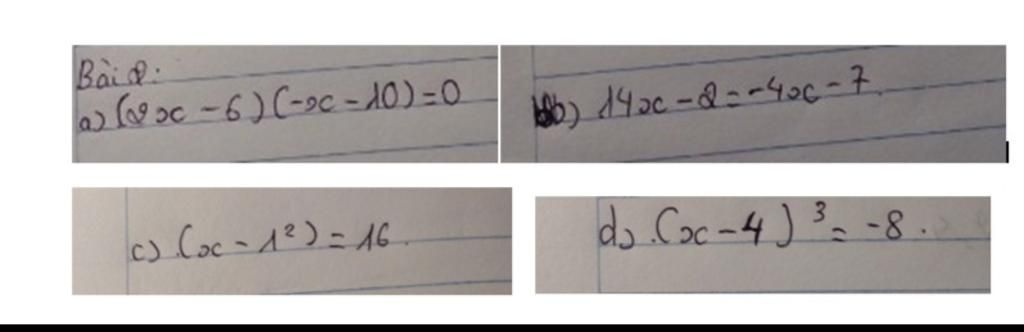 Bài 2:
a) (2x - 6)(-x - 10) = 0
b) 14x - 2 = -4x - 7
c) (x - 1²) = 16.
d) (x - 4)³ = -8.